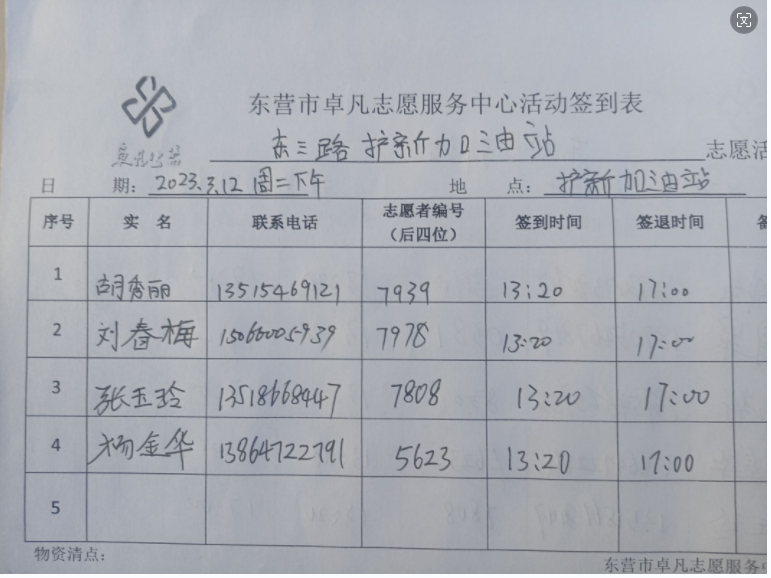 东营市卓凡志愿服务中心活动签到表
东三路护新加油站 志愿活
日 期: 2023.3.12 周二下午 地 点: 护新加油站
序号 实 名 联系电话 志愿者编号 签到时间 签退时间
(后四位)
1 胡秀丽 13515469121 7939 13:20 17:00
2 刘春梅 15066005939 7978 13:20 17:00
3 张玉玲 13518668447 7808 13:20 17:00
4 杨金华 13864722791 5623 13:20 17:00
5
物资清点:
东营市卓凡志愿服务